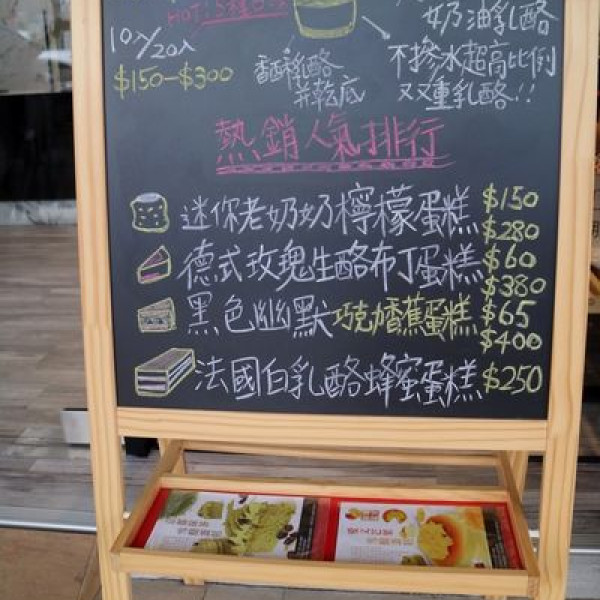 奶油乳酪
10入/20入
$150-$300
不摻水超高比例
又又重乳酪!!
香酥乳酪
並乾底
熱銷人氣排行
迷你老奶奶檸檬蛋糕 $150
$280
德式玫瑰生酪布丁蛋糕 $60
$380
黑色幽默 巧克力香蕉蛋糕 $65
$400
法國白乳酪蜂蜜蛋糕 $250